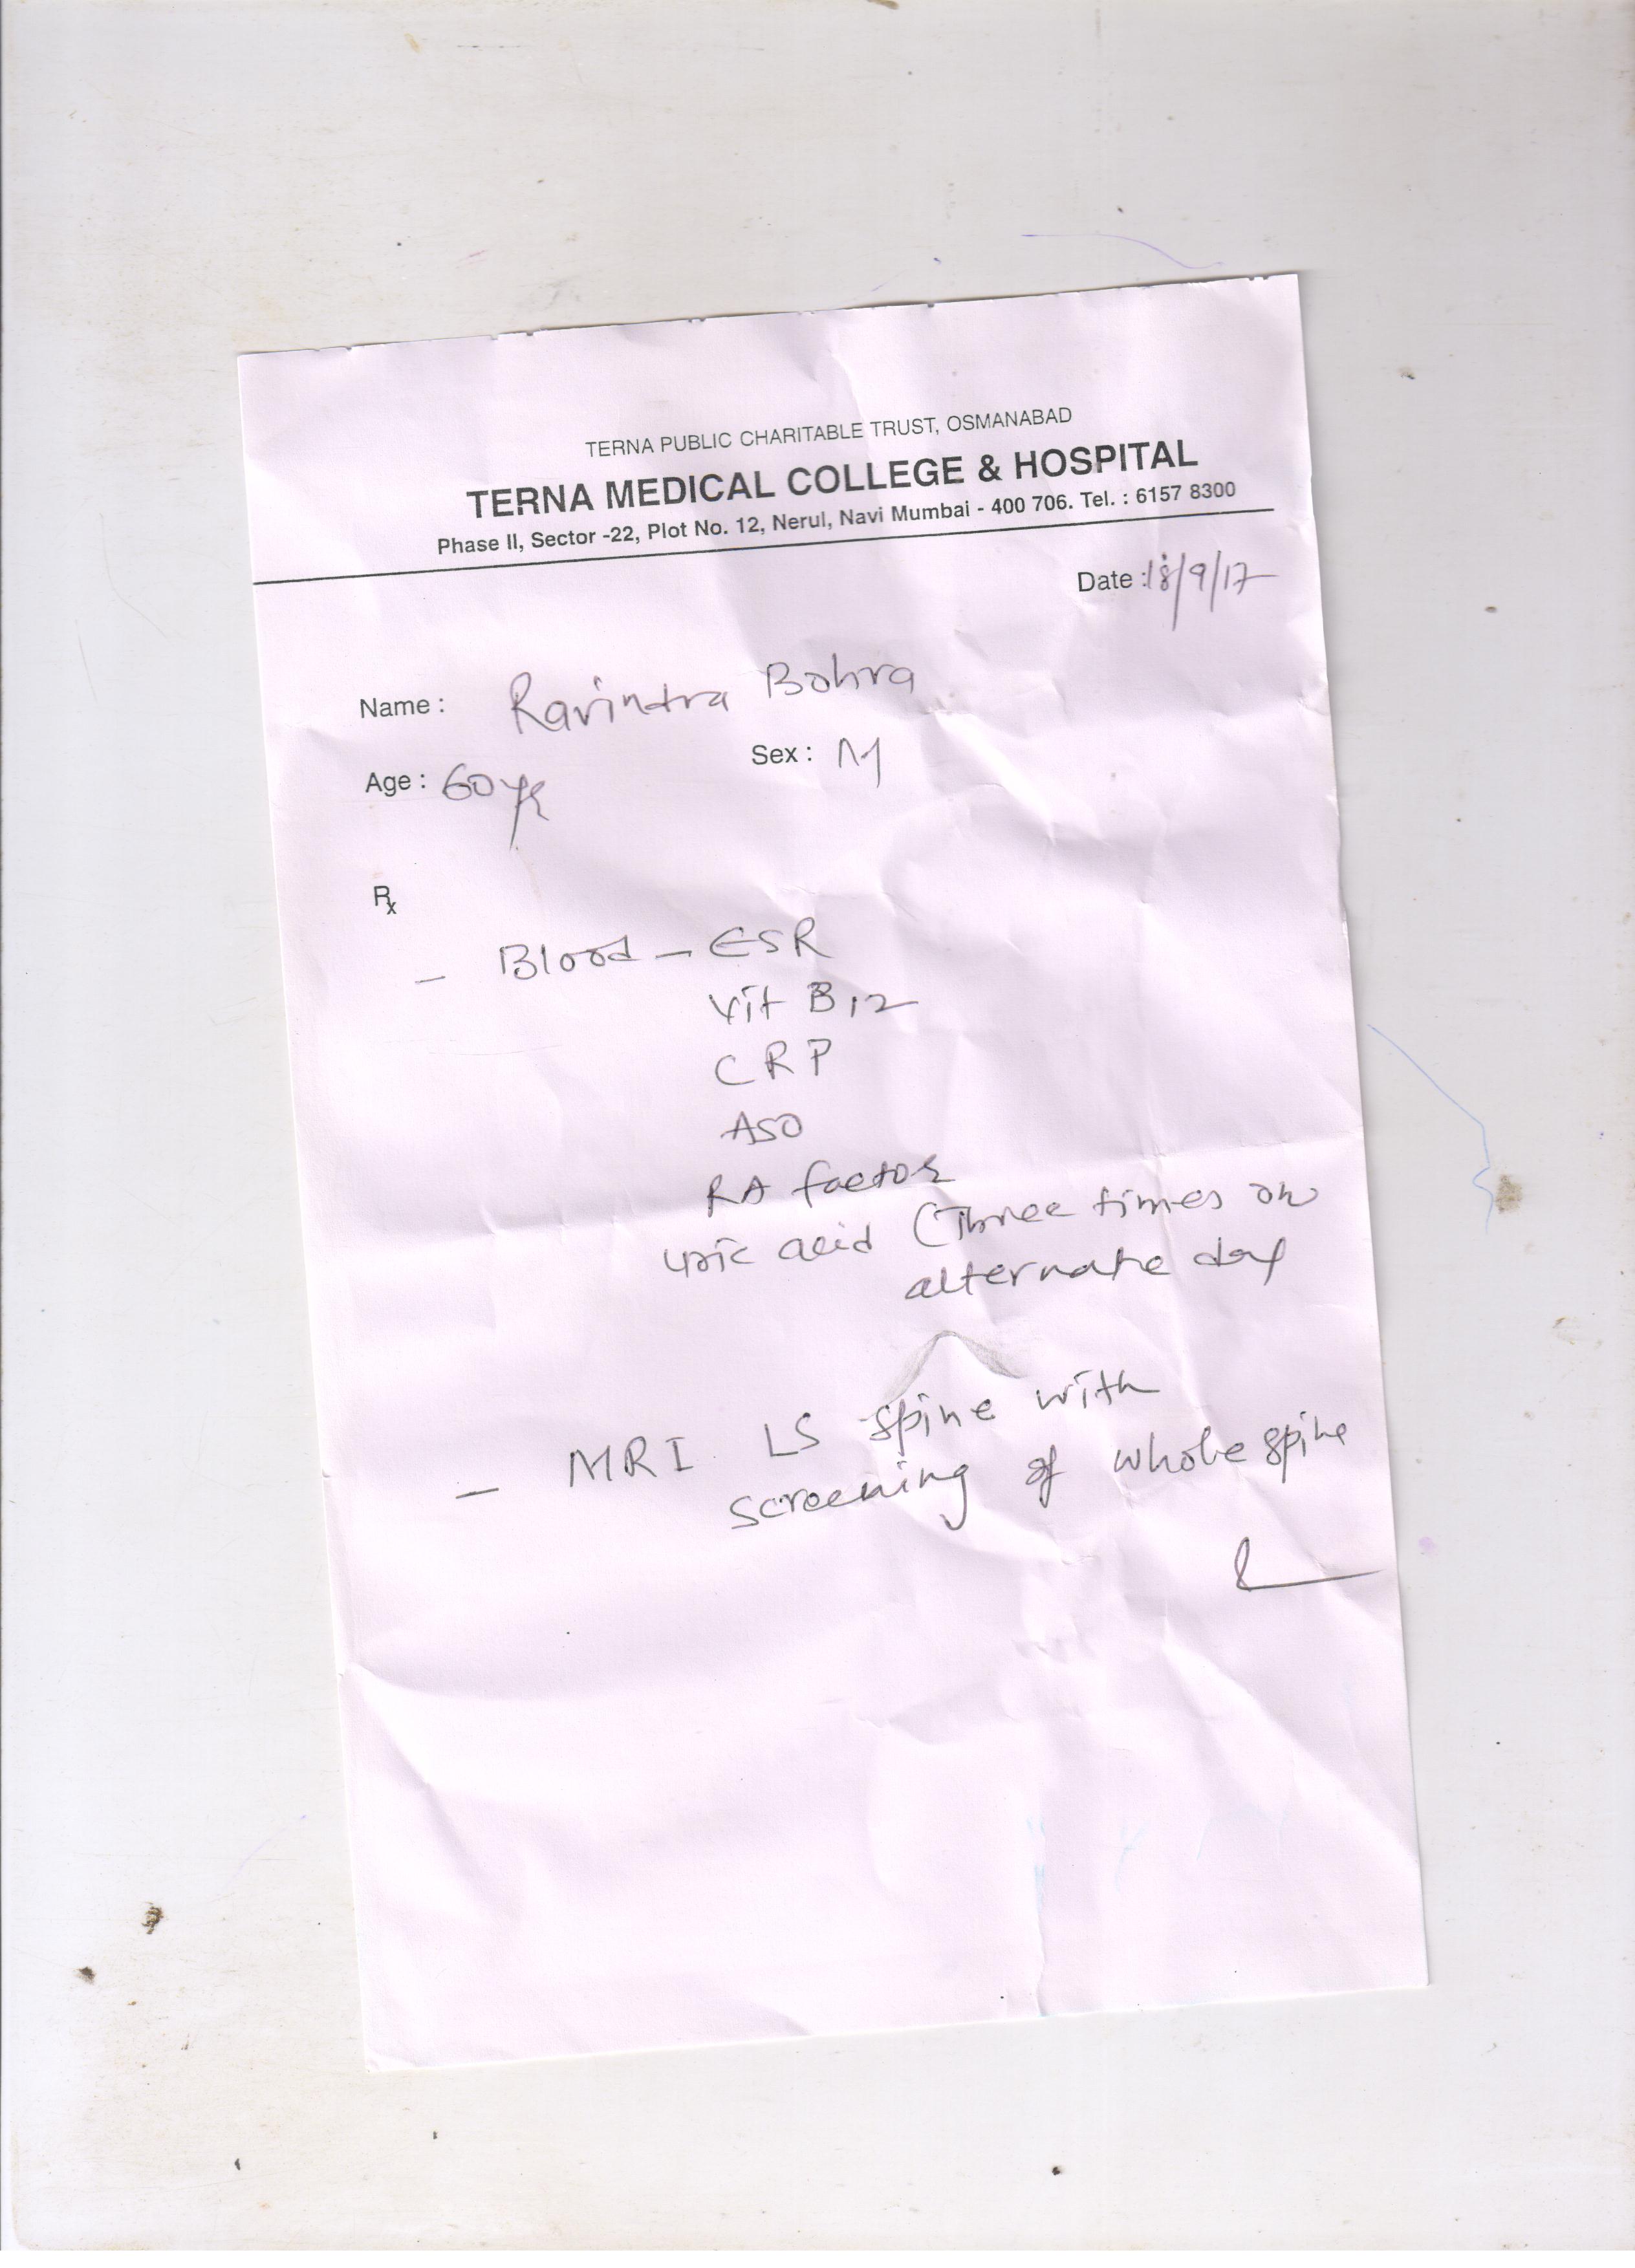 TERNA PUBLIC CHARITABLE TRUST, OSMANABAD
TERNA MEDICAL COLLEGE & HOSPITAL
Phase II, Sector -22, Plot No. 12, Nerul, Navi Mumbai - 400 706. Tel. : 6157 8300
Date : 18/9/17
Name : Ravindra Bohra
Age : 60 yr Sex : M
Rx
- Blood - ESR
Vit B12
CRP
ASO
RA factor
uric acid (Three times on
alternate day
- MRI LS spine with
screening of whole spine